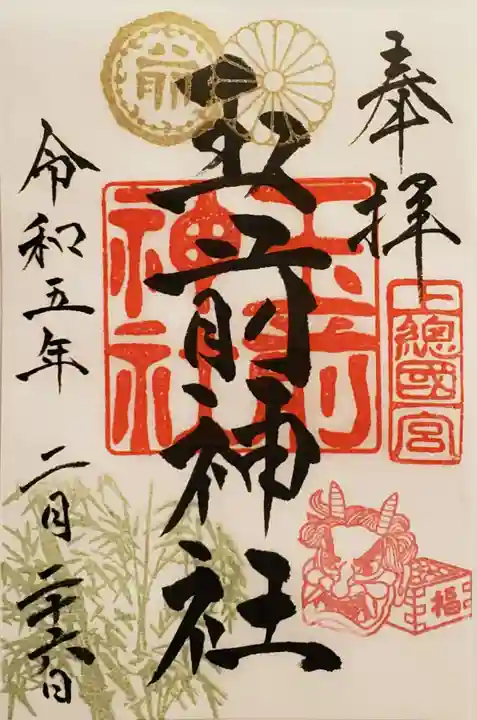 奉拝
上總國宮
玉前神社
玉前神社
前
福
令和五年 二月二十六日